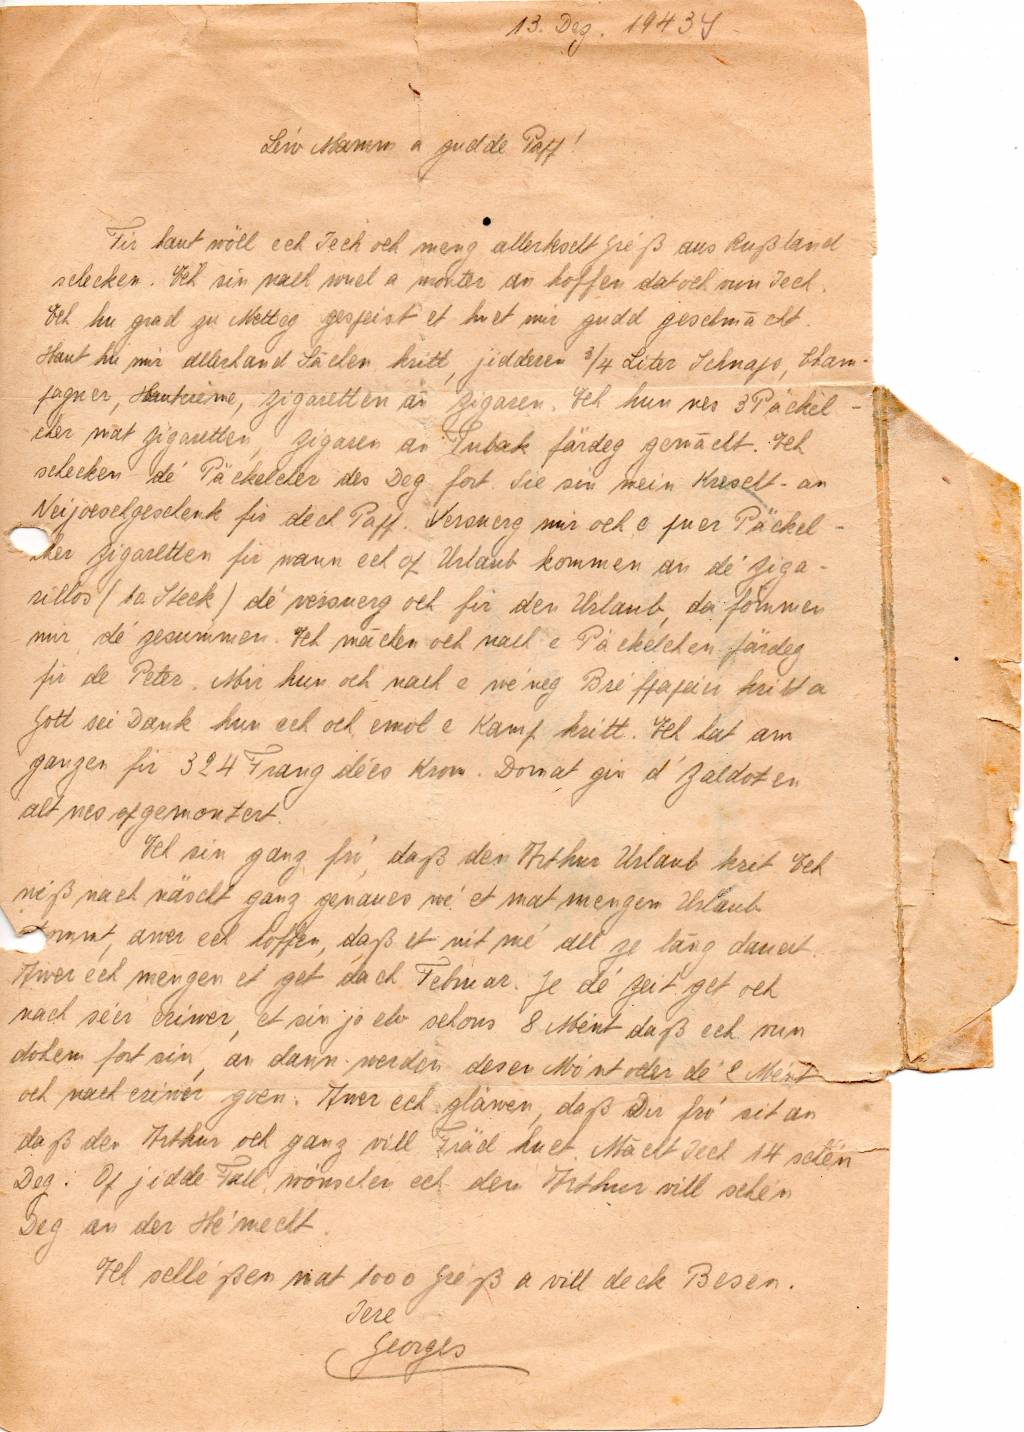 13. Dez. 1943
Léiw Mamm a gudde Paff!
Fir haut wöll ech Iech och meng allerhselt Gréß aus Rußland
schecken. Ech sin nach wuel a monter an hoffen dat och vun Iech.
Ech hu grad zu Metteg gespeist et huet mir gudd geschmächt.
Haut hu mir allerhand Sächen kritt, jidderen 3/4 Liter Schnaps, Cham-
pagner, Hautcreme, Zigaretten an Zigaren. Ech hun nes 3 Päckel-
cher mat Zigaretten, Zigaren an Tubak färdeg gemächt. Ech
schecken dé Päckelcher des Deg fort. Sie sin mein Krescht- an
Neijoeschgeschenk fir dech Paff. Versuerg mir och e puer Päckel-
cher Zigaretten fir wann ech op Urlaub kommen an dé Ziga-
rillos (10 Steck) dé versuerg och fir den Urlaub, da fömmen
mir dé zesummen. Ech mächen och nach e Päckelchen färdeg
fir de Peter. Mir hun och nach e wéneg Bréffpapeier kritt a
Gott sei Dank hun ech och emol e Kamp kritt. Ech hat am
ganzen fir 324 Frang dées Krom. Domat gin d'Zaldoten
alt nes opgemontert.
Ech sin ganz fró, daß den Arthur Urlaub krit. Ech
wëß nach näscht ganz genaues wé et mat mengem Urlaub
kömmt, awer ech hoffen, daß et nit mé all ze läng dauert.
Awer ech mengen et get dach Februar. Je dé Zeit get och
nach séier eriwer, et sin jo elo schons 8 Ment daß ech vun
dohem fort sin, an dann werden deser Mont oder dé 2 Ment
och nach eriwer goen. Awer ech gläwen, daß Dir fró sit an
daß den Arthur och ganz vill Fräd huet. Mächt Iech 14 schén
Deg. Op jidde Fall wönschen ech dem Arthur vill schén
Deg an der Hémecht.
Ech schléßen mat 1000 Gréß a vill deck Besen.
Iere
Georges